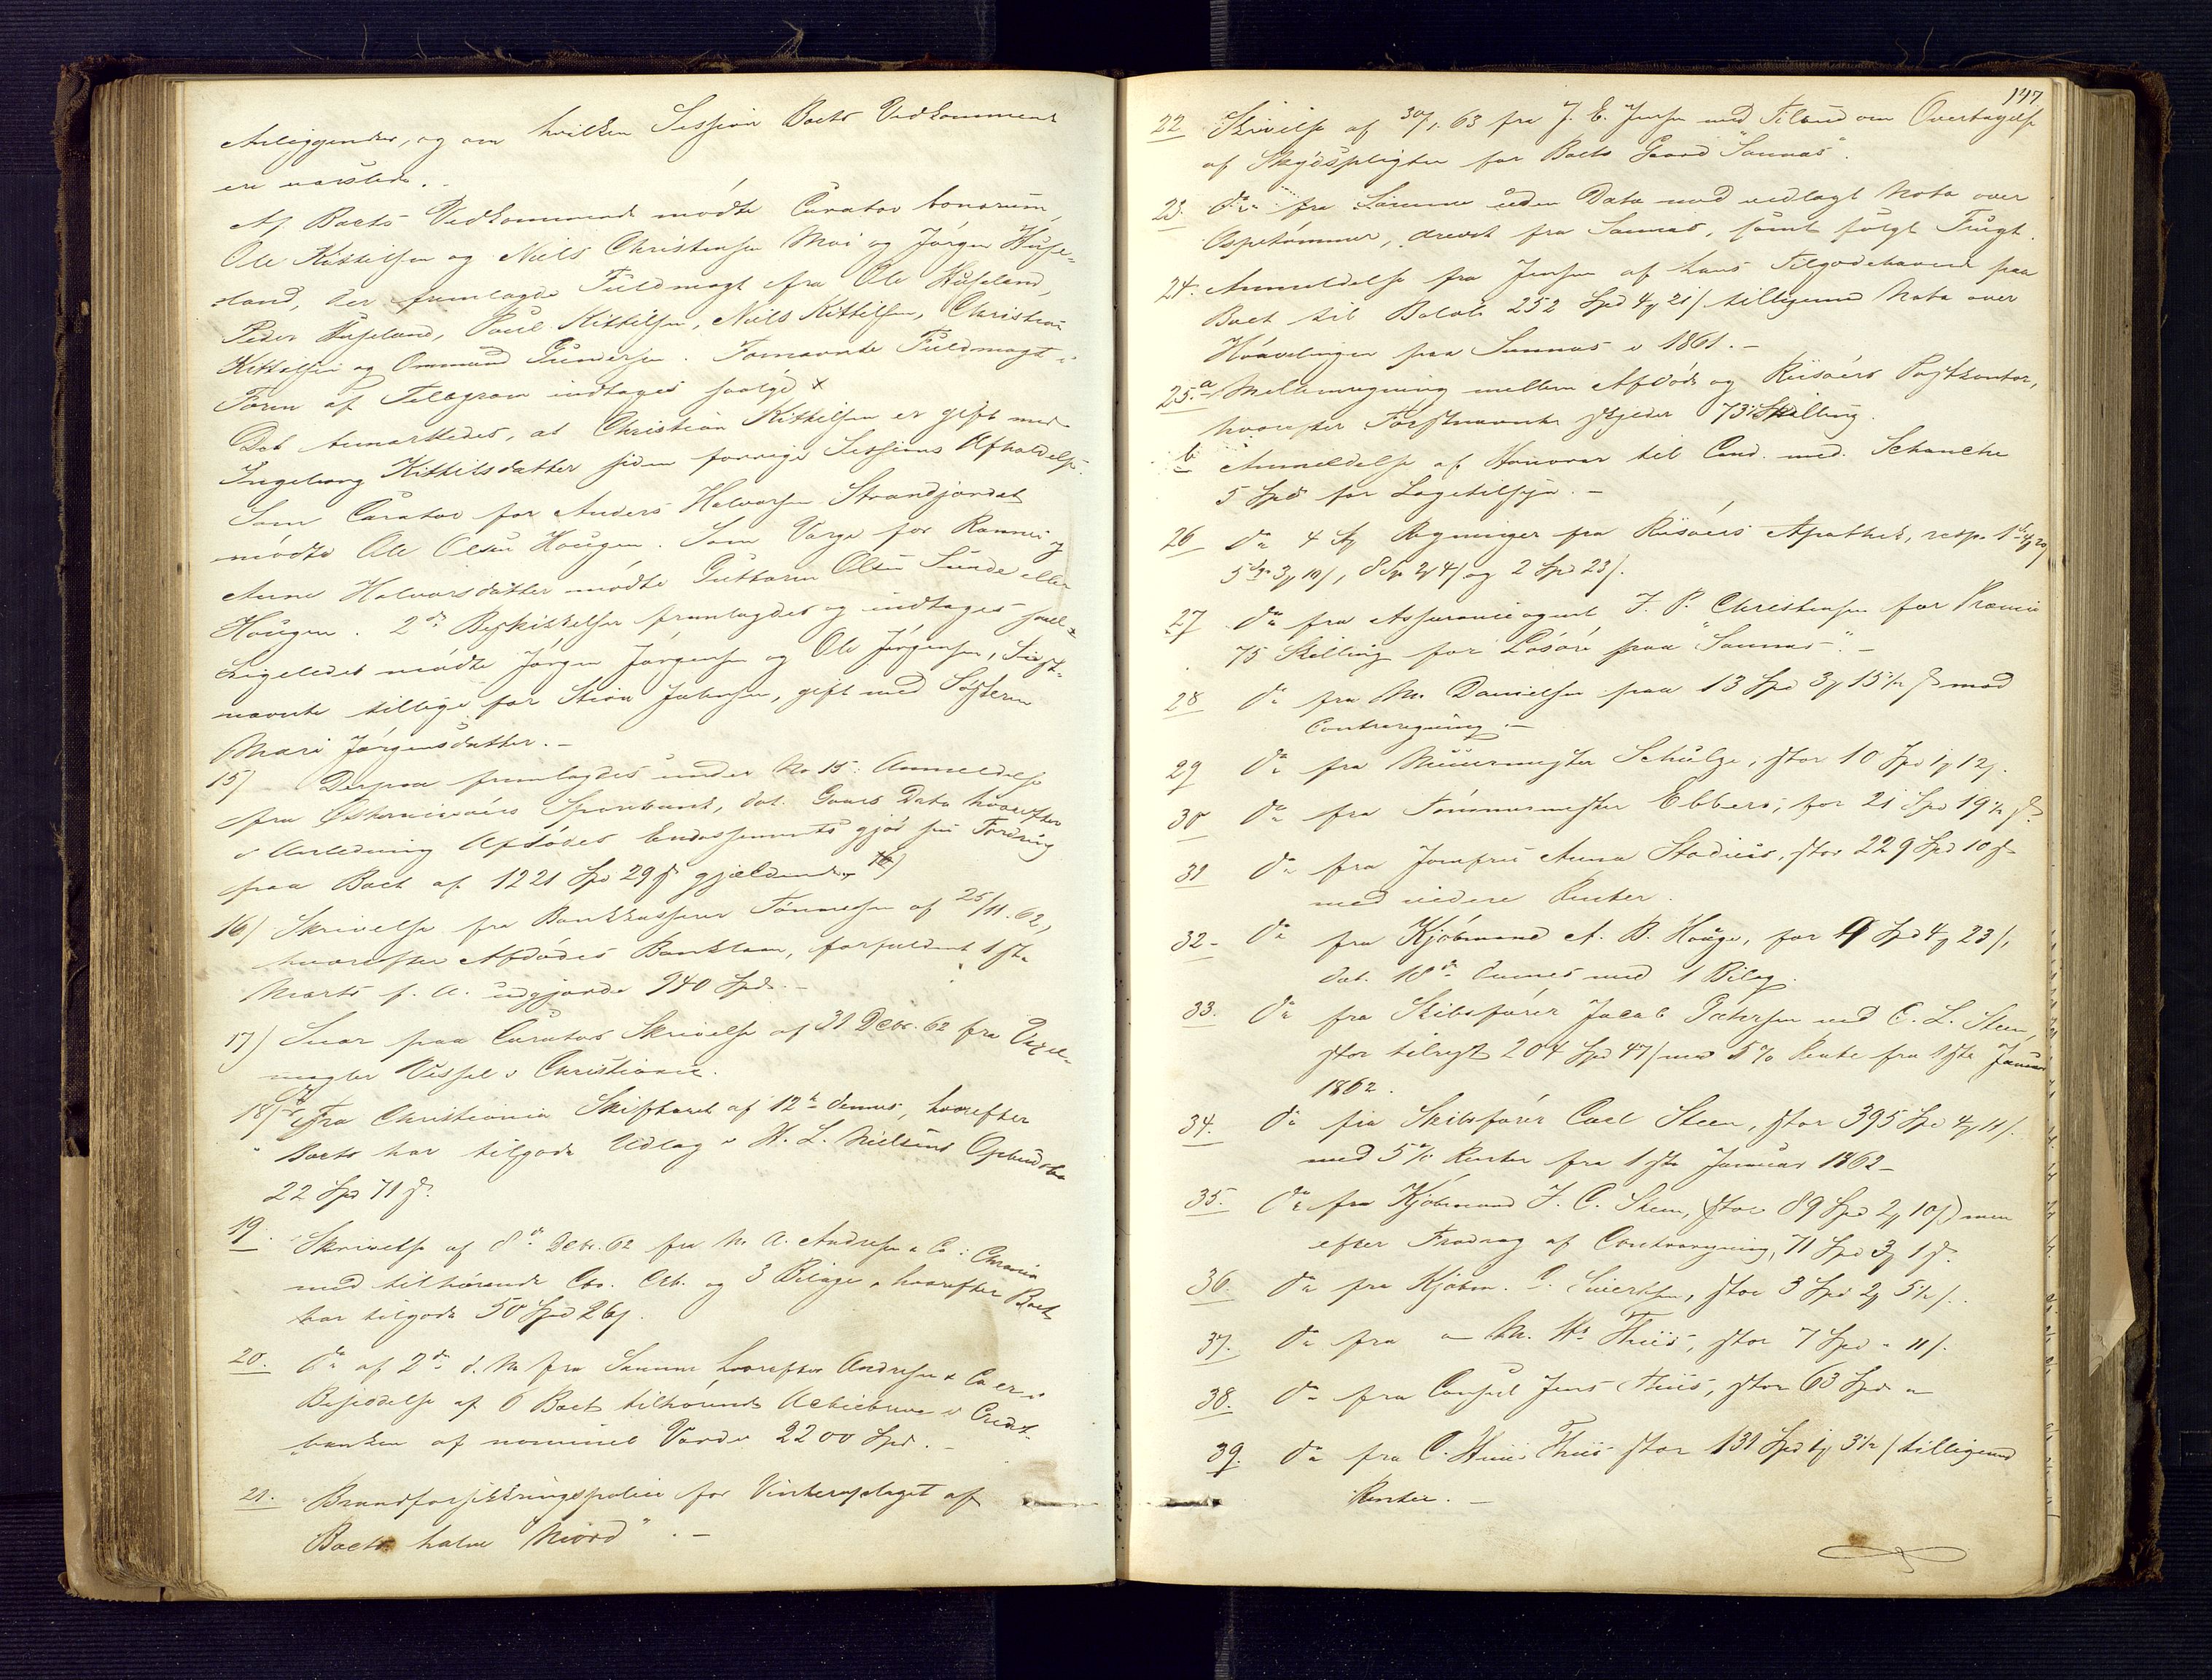 Anliggender, og om hvilken Session Boets Vedkommende
ere varslede. -
Af Boets Vedkommende mødte Curator bonorum,
Ole Kittilsen og Niels Christensen Moi og Jørgen Huse-
land, der fremlagde Fuldmagt fra Ole Huseland,
Peder Huseland, Poul Kittilsen, Niels Kittilsen, Christian
Kittilsen og Ommund Gundersen. Fornævnte Fuldmagt i
Form af Telegram indtages saalyd. x
Det bemærkedes, at Christian Kittilsen er gift med
Ingeborg Kittilsdatter siden forrige Sessions Afholdelse.
Som Curator for Anders Halvorsen Strandjordet
mødte Ole Olsen Hougen. Som Værge for Rannei og
Anne Halvorsdatter mødte Guttorm Olsen Sunde eller
Hougen. 2de Beskikkelser fremlagdes og indtages saal x
Ligeledes mødte Jørgen Jørgensen og Ole Jørgensen, Sidst-
nævnte tillige for Stian Jakobsen, gift med Søsteren
Mari Jørgensdatter. -
15) Derpaa fremlagdes under No 15: Anmeldelse
fra Østerriisøers Sparebank, dat. Gaars Dato hvorefter
i Anledning Afdødes Endossements gjør sin Fordring
paa Boet af 1221 Spd 29 s gjældende.
16) Skrivelse fra Bankkasserer Tønnesen af 25/11. 62,
hvorefter Afdødes Banklaan, forfaldent 1ste
Marts f. A. udgjorde 940 Spd. -
17) Svar paa Curators Skrivelse af 31 Decbr. 62 fra Vexel-
mægler Vessel i Christiania.
18) do fra Christiania Skifteret af 12te dennes, hvorefter
Boets har tilgode Udlag i H. L. Nielsens Opbudsbo
22 Spd 71 s.
19. Skrivelse af 8de Decbr. 62 fra N. A. Andresen & Co i Chrania
med tilhørende Cto. Crt. og 3 Bilage, hvorefter Boet
har tilgode 50 Spd 26 s.
20. do af 2den d. M fra Samme hvorefter Andresen & Co er i
Besiddelse af 6 Boet tilhørende Actiebreve i Credit-
banken af nominel Værdi 2200 Spd. -
21. Brandforsikringspolice for Vinteroplaget af
Boets halve "Niord". -
147
22 Skrivelse af 30/1. 63 fra J. E. Jensen med Tilbud om Overtagelse
af Skydspligten for Boets Gaard "Sannæs".
23. do fra Samme uden Dato med vedlagt Nota over
Ospetømmer, drevet fra Sannæs, samt solgt
24. Anmeldelse fra Jensen af hans Tilgodehavende paa
Boet til Beløb 252 Spd 4 21 s tilligemed Nota over
paa Sannæs i 1861. -
25.a Mellemregning mellem Afdøde og Riisøers Postkontor,
hvorefter Førstnævnte skylder 73 Skilling.
b Anmeldelse af Honorar til Cand. med. Schanche
5 Spd for Lægetilsyn. -
26 do 4 Regninger fra Riisøers Apothek, resp. 1
5 Spd 3 10 s, 8 Spd 2 4 s og 2 Spd 23 s.
27 do fra Assuranceagent J. P. Christensen for Præmie
75 Skilling for Løsøre paa "Sannæs". -
28 do fra M. Danielsen paa 13 Spd 3 15 1/2 s mod
Contraregning. -
29 do fra Muurmester Schulze, stor 10 Spd 1 12 s.
30 do fra Tømmermester Ebbers, for 21 Spd 19 1/2 s.
31 do fra Jomfru Anna Stadius, stor 229 Spd 10 s
med videre Renter.
32 - do fra Kjøbmand A. B. Houge, for 9 Spd 4 23 s,
dat. 18de dennes med 1 Bilag.
33. do fra Skibsfører Jacob Petersen ved C. L. Steen,
stor tilrest 204 Spd 47 s med 5 % Rente fra 1ste Januar
1862.
34. do fra Skibsfører Carl Steen, stor 395 Spd 4 11 s.
med 5 % Renter fra 1ste Januar 1862 -
35. do fra Kjøbmand J. C. Steen, (stor 89 Spd 2 10 s) men
efter Fradrag af Contraregning, 71 Spd 3 1 s.
36. do fra Kjøbm. Sivertsen, stor 3 Spd 2 5 1/2 s.
37. do fra - M. Hs Thiis, stor 7 Spd - 11 s.
38. do fra Consul Jens Thiis, stor 63 Spd -
39. do fra C. Thiis stor 131 Spd 1 3 1/2 s tilligemed
Renter. -